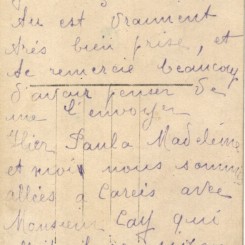 Au est vraiment
très bien prise, et
te remercie beaucoup
d'avoir penser de
me l'envoyer
Hier Paula Madeleine
et moi nous somm
allées à Careis avec
Monsieur Cay qui